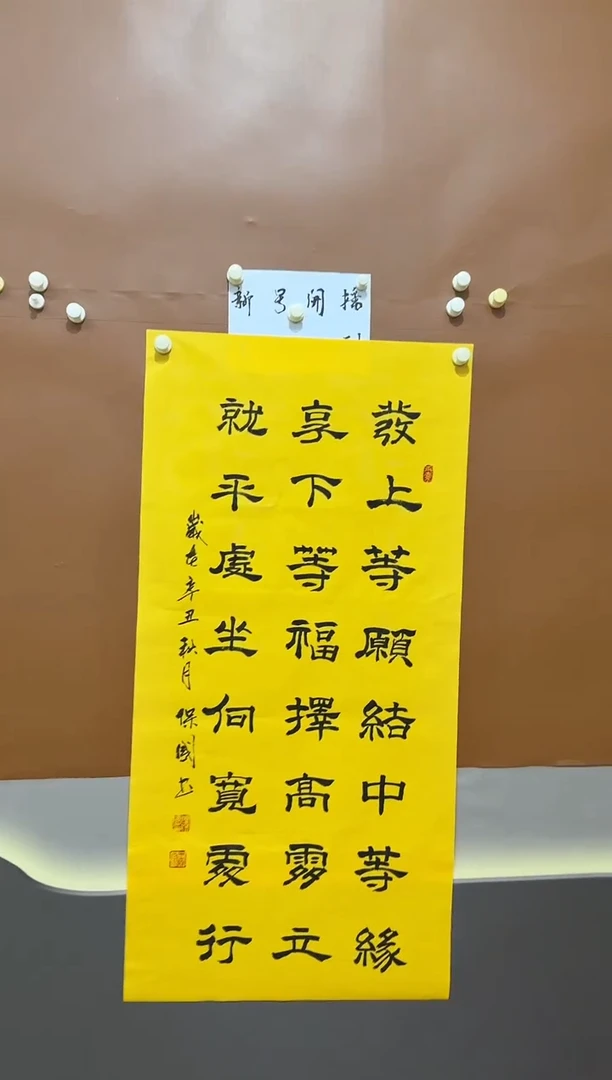 新号開播
發上等願結中等緣
享下等福擇高處立
就平處坐向寬處行
歲在辛丑秋月 保國書